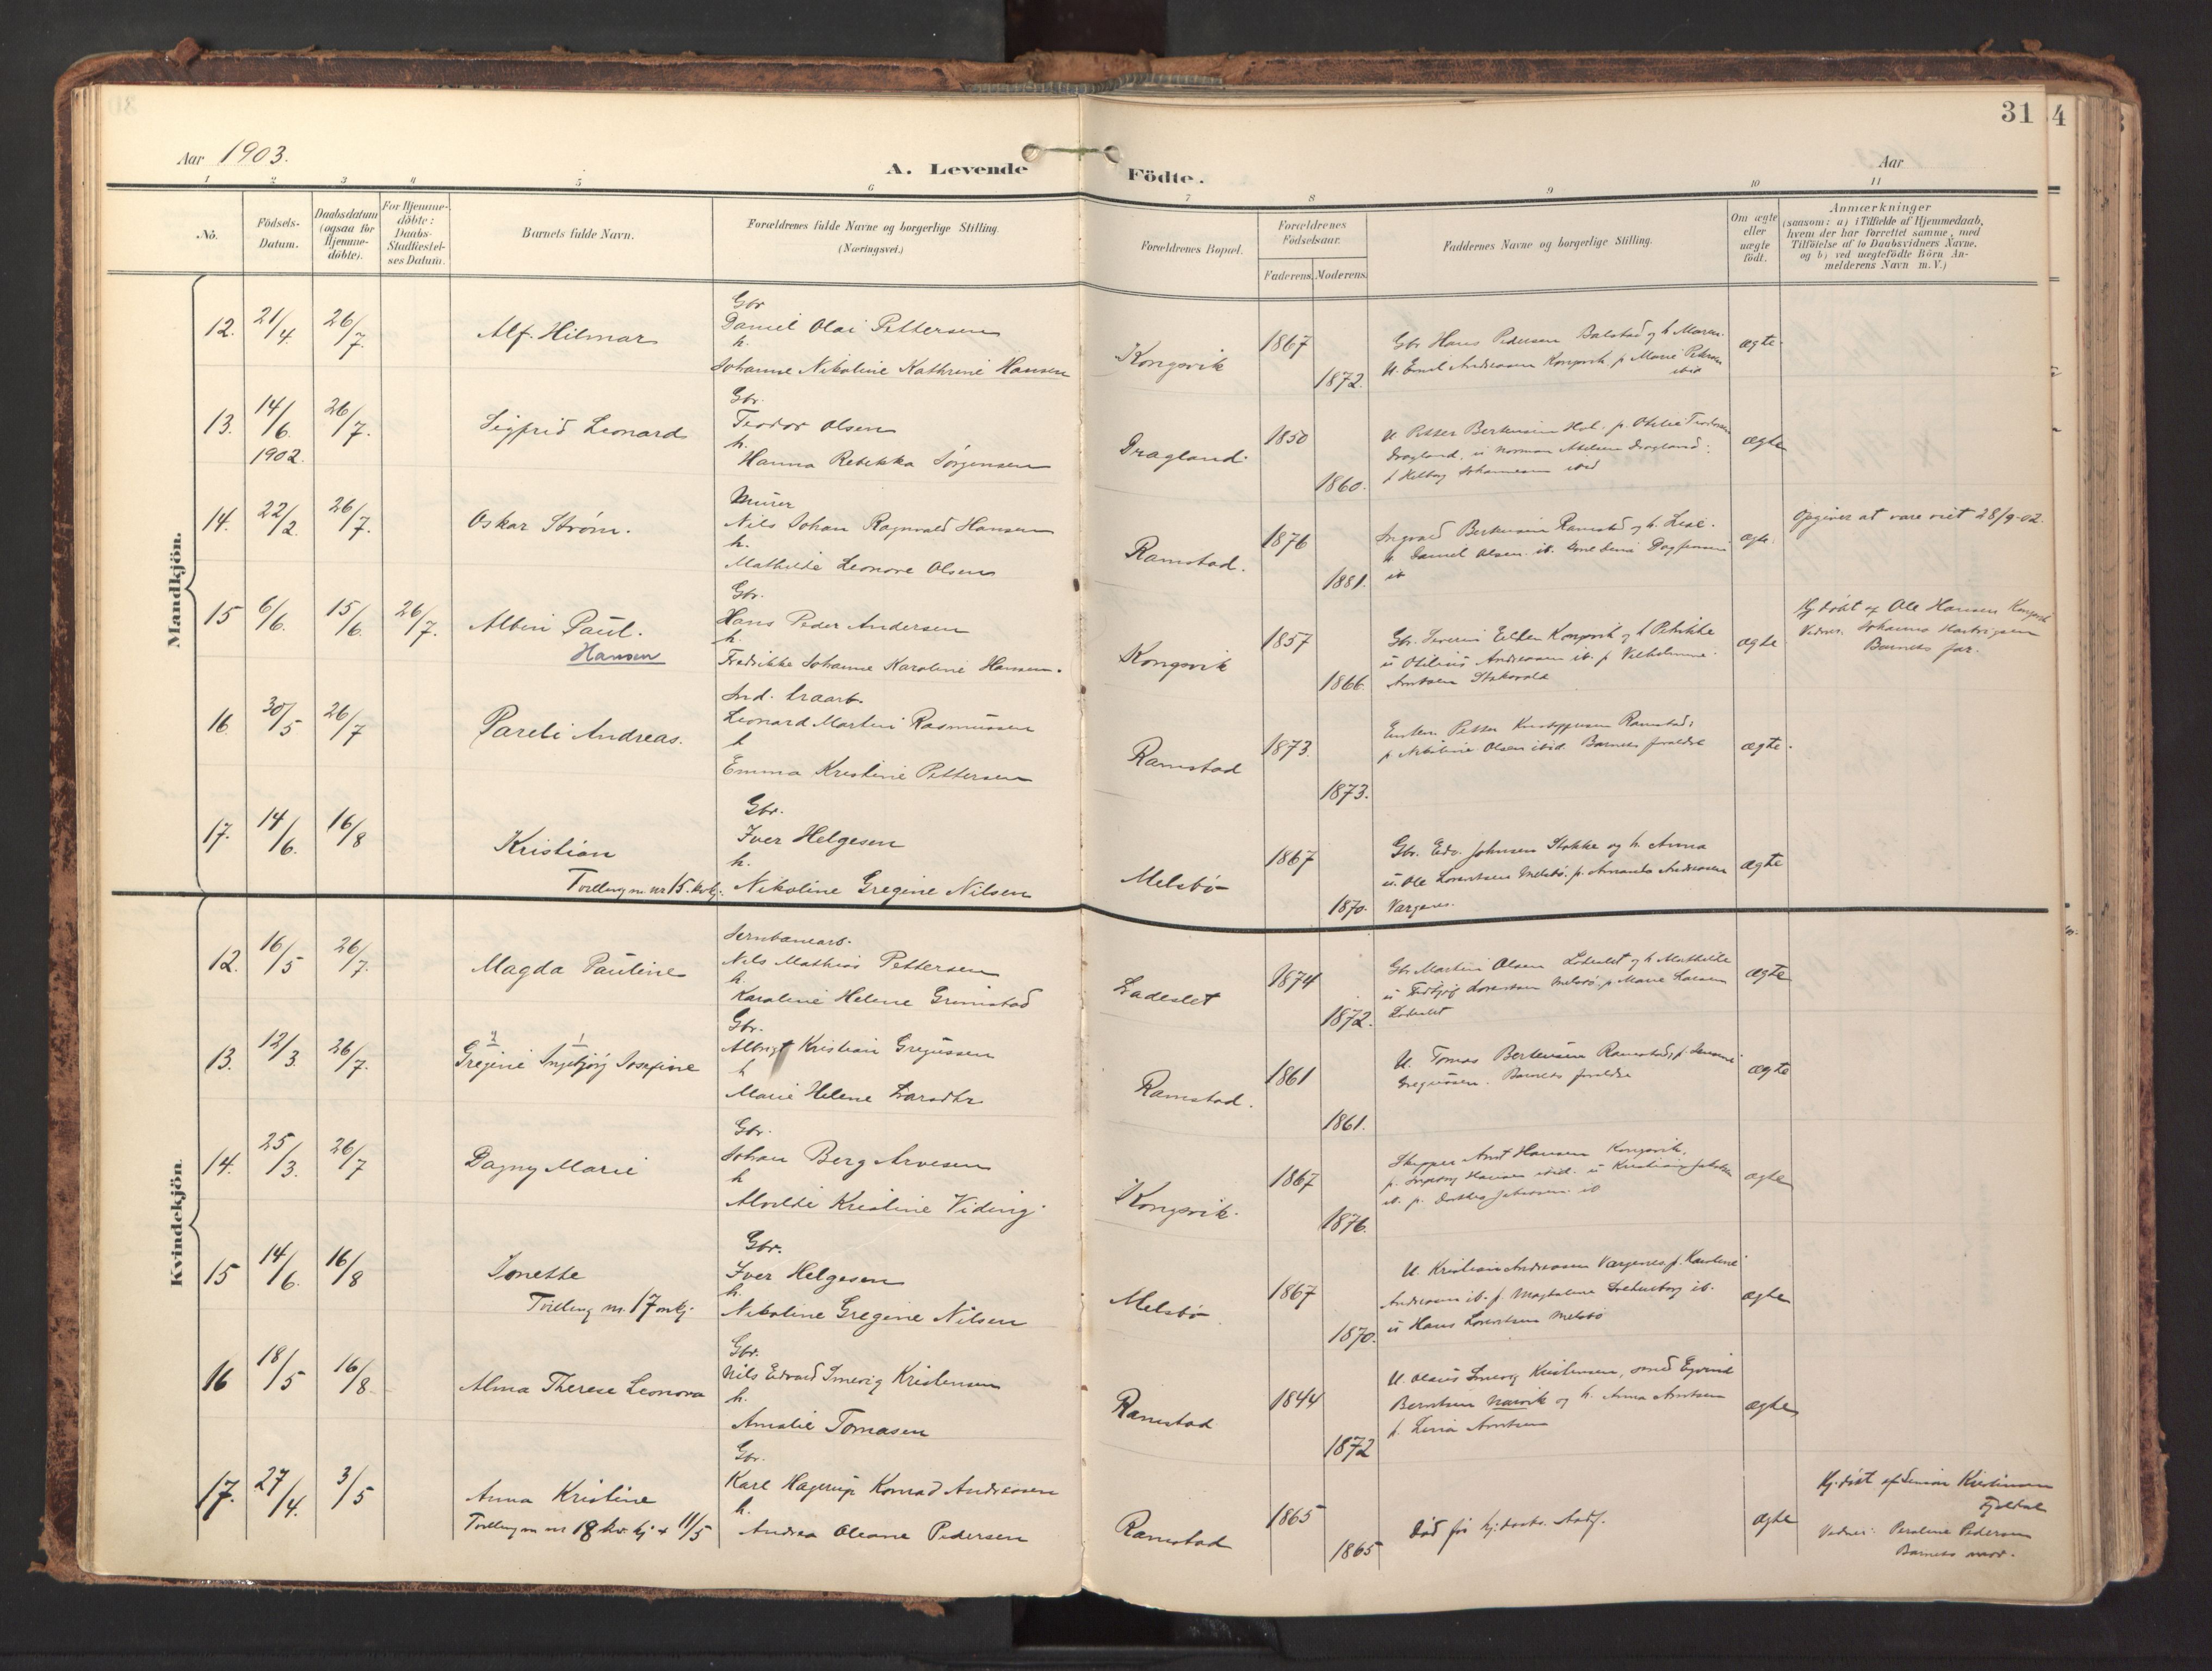 31
4
Aar 1903.
A. Levende
Födte.
Aar
1 2 3 4 5 6 7 8 9 10 11
No.
Födsels-
Datum.
Daabsdatum
(ogsaa for
Hjemme-
döbte).
For Hjemme-
döbte:
Daabs-
Stadfæstel-
ses Datum.
Barnets fulde Navn.
Forældrenes fulde Navne og borgerlige Stilling.
(Næringsvei.)
Forældrenes Bopæl.
Forældrenes
Födselsaar.
Faderens. Moderens.
Faddernes Navne og borgerlige Stilling.
Om ægte
eller
uægte
födt.
Anmærkninger
(saasom: a) i Tilfælde af Hjemmedaab,
hvem der har forrettet samme, med
Tilföielse af to Daabsvidners Navne,
og b) ved uægtefödte Börn An-
melderens Navn m.V.)
Mandkjön.
12. 21/4. 26/7. Alf. Hilmar
Gbr
Daniel Olai Pettersen
h.
Johanne Nikoline Kathrine Hansen
Kongsvik 1867 1872.
Gbr Hans Pedersen Balstad og h. Maren.
U. Emil Andreasen Kongsvik p. Marie
ibid
ægte
13. 14/6. 1902. 26/7. Sigfrid Leonard
Gbr.
Teodor Olsen
h.
Hanna Rebekka Jörgensen
Dragland. 1850 1860.
Dragland. u Norman Dragland.
ægte
14. 22/2. 26/7. Oskar Strøm.
Murer
Nils Johan Ragnvald Hansen
h.
Mathilde Leonore Olsen
Ramstad. 1876 1881.
Ingvald Ramstad og h. Lise.
u. Daniel Olsen ib.
ib
ægte.
Opgives at være viet 28/9-02.
15 6/6. 15/6. 26/7. Albin Paul.
Hansen
Gbr.
Hans Peder Andersen
h.
Fredrikke Johanne Karoline Hansen.
Kongsvik 1857 1866.
Gbr. Severin Ellen Kongsvik og h Petrikke
u Otilius Andreasen ib. p Vilhelmine
ægte
Hj. døbt af Ole Hansen Kongsvik
Vidner. Johanna Hartvigsen
Barnets far.
16 30/5 26/7 Pareli Andreas.
Ind. Graarb.
Leonard Martin Rasmussen
h
Emma Kristine Pettersen
Ramstad 1873. 1873.
Petter Ramstad,
p Nikoline Olsen ibid. Barnets foreldre
ægte.
17. 14/6. 16/8 Kristian
Tvilling m. nr 15. kvkj.
Gbr.
Iver Helgesen
h.
Nikoline Gregine Nilsen
Melsbø 1867 1870.
Gbr. Edv. Johnsen Stokke og h. Anna
u. Ole Lorentsen Melsbø. p. Amanda Andreasen
Vargenes.
ægte
Kvindekjön.
12. 16/5 26/7. Magda Pauline
Jernbanearb.
Nils Mathias Pettersen
h.
Karoline Helene Grimstad
Ladeslet 1874 1872.
Gbr Martin Olsen Ladeslet og h Mathilde
u Lorentsen Melsbø. p Marie Larsen
Ladeslet
ægte
13. 12/3. 26/7. 2 1
Gregine Ingebjørg Josefine
Gbr.
Albrigt Kristian Gregussen
h
Marie Helene Larsdtr
Ramstad. 1861 1861.
U. Tomas Berteussen Ramstad, p.
Gregussen. Barnets foreldre
ægte
14. 25/3. 26/7 Dagny Marie
Gbr.
Johan Berg Arvesen
h
Alvilde Kristine Viding.
Kongsvik. 1867 1876.
Skipper Arnt Hansen Kongsvik,
p. Ingeborg Hansen ibid. u Kristian Jakobsen
ib. p. Dorthea Jakobsen ib
ægte
15 14/6. 16/8 Jonette
Tvilling m. 17 mkj.
Gbr.
Iver Helgesen
h.
Nikoline Gregine Nilsen
Melsbø 1867 1870.
U. Kristian Andreasen Vargenes, p. Karoline
Andreasen ib. p Magdalene ib.
u Hans Lorentsen Melsbø
ægte
16 18/5 16/8. Alma Therese Leonora
Gbr.
Nils Edvard Smevig Kristensen
h.
Amalie Tomasen
Ramstad 1844 1872
U. Olaus Smevig Kristensen, smed Eyvind
Berntsen Narvik og h. Anna Arntsen
p. Lina Arntsen
ægte
17. 27/4. 3/5 Anna Kristine
Tvilling m nr 18 kv. kj + 11/5
Gbr.
Karl Hagerup Konrad Andreasen
h.
Andrea Oleane Pedersen
Ramstad 1865 1865
Død før hj.daabs. stadf.
ægte
Hj. døbt af Simon Kristiansen
Fjeldal
Vidner: Peroline Pedersen
Barnets mor.